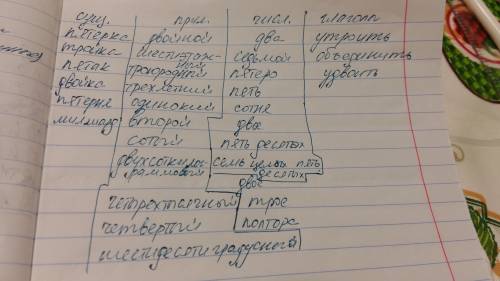 сущ. прил. числ. глагол
пятёрка двойной два утроить
тройка шестиэтажный седьмой объединить
пятак троюродный пятеро удвоить
двойка трёхлетний пять
пятерня одинокий сотня
миллиард второй две
сотый пять десятых
двухсоткилограммовый семь целых пять десятых
двое
четырёхтысячный трое
четвёртый полтора
шестидесятиградусной